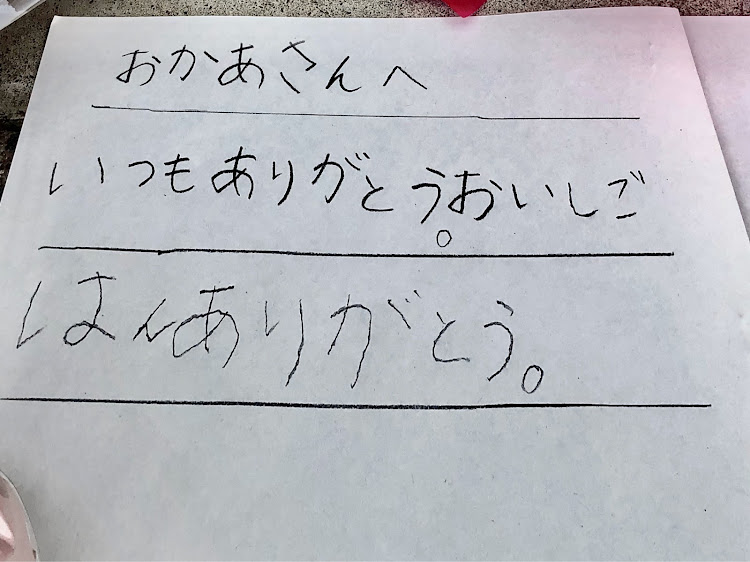 おかあさんへ
いつもありがとう。おいしご
はんありがとう。